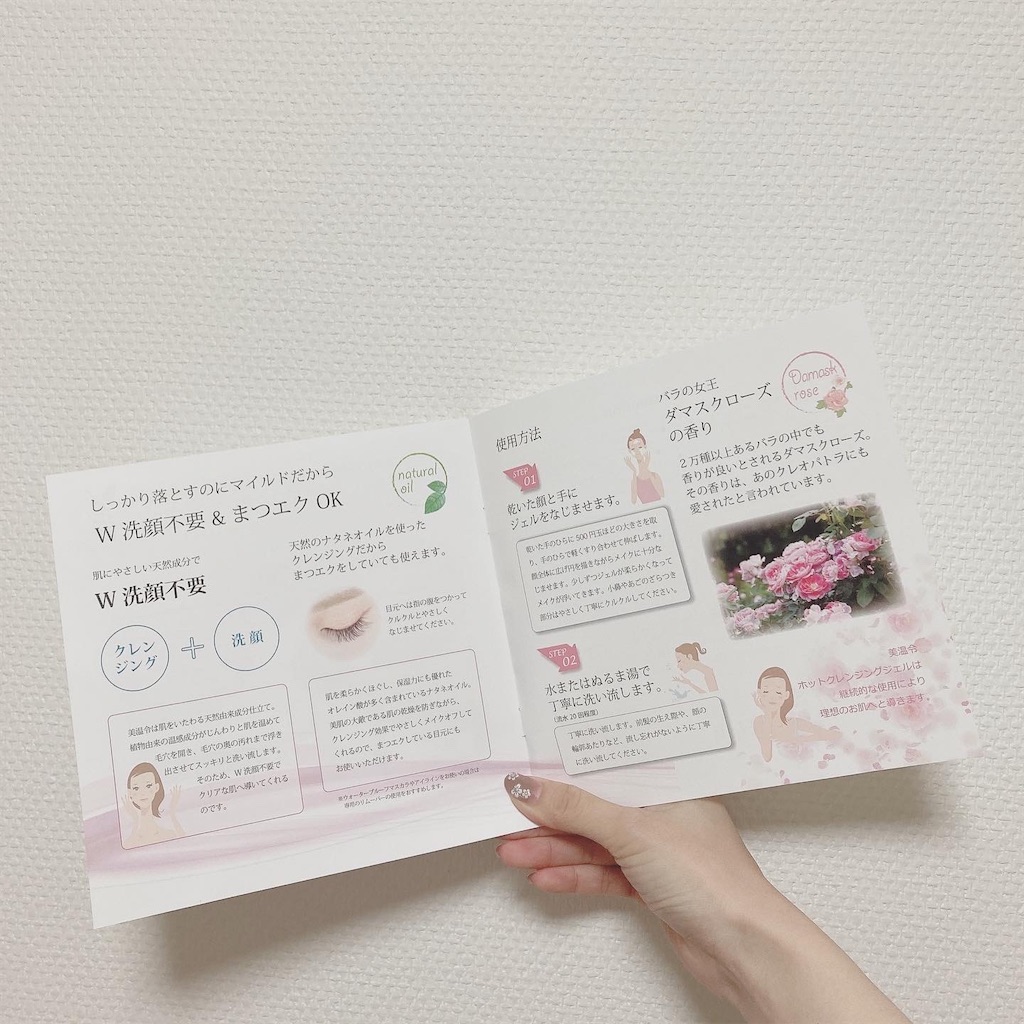 しっかり落とすのにマイルドだから
W 洗顔不要 & まつエク OK
natural
oil
肌にやさしい天然成分で
W 洗顔不要
クレン
ジング
+
洗 顔
美温令は肌をいたわる天然由来成分仕立て。
植物由来の温感成分がじんわりと肌を温めて
毛穴を開き、毛穴の奥の汚れまで浮き
出させてスッキリと洗い流します。
そのため、W 洗顔不要で
クリアな肌へ導いてくれる
のです。
天然のナタネオイルを使った
クレンジングだから
まつエクをしていても使えます。
目元へは指の腹をつかって
クルクルとやさしく
なじませてください。
肌を柔らかくほぐし、保湿力にも優れた
オレイン酸が多く含まれているナタネオイル。
美肌の大敵である肌の乾燥を防ぎながら、
クレンジング効果でやさしくメイクオフして
くれるので、まつエクしている目元にも
お使いいただけます。
※ウォータープルーフマスカラやアイラインをお使いの場合は
専用のリムーバーの使用をおすすめします。
使用方法
STEP
01
乾いた顔と手に
ジェルをなじませます。
乾いた手のひらに 500 円玉ほどの大きさを取
り、手のひらで軽くすり合わせて伸ばします。
顔全体に広げ円を描きながらメイクに十分な
じませます。少しずつジェルが柔らかくなって
メイクが浮いてきます。小鼻やあごのざらつき
部分はやさしく丁寧にクルクルしてください。
STEP
02
水またはぬるま湯で
丁寧に洗い流します。
(流水 20 回程度)
丁寧に洗い流します。前髪の生え際や、顔の
輪郭あたりなど、流し忘れがないように丁寧
に洗い流してください。
バラの女王
ダマスクローズ
の香り
Damask
rose
２万種以上あるバラの中でも
香りが良いとされるダマスクローズ。
その香りは、あのクレオパトラにも
愛されたと言われています。
美温令
ホットクレンジングジェルは
継続的な使用により
理想のお肌へと導きます。